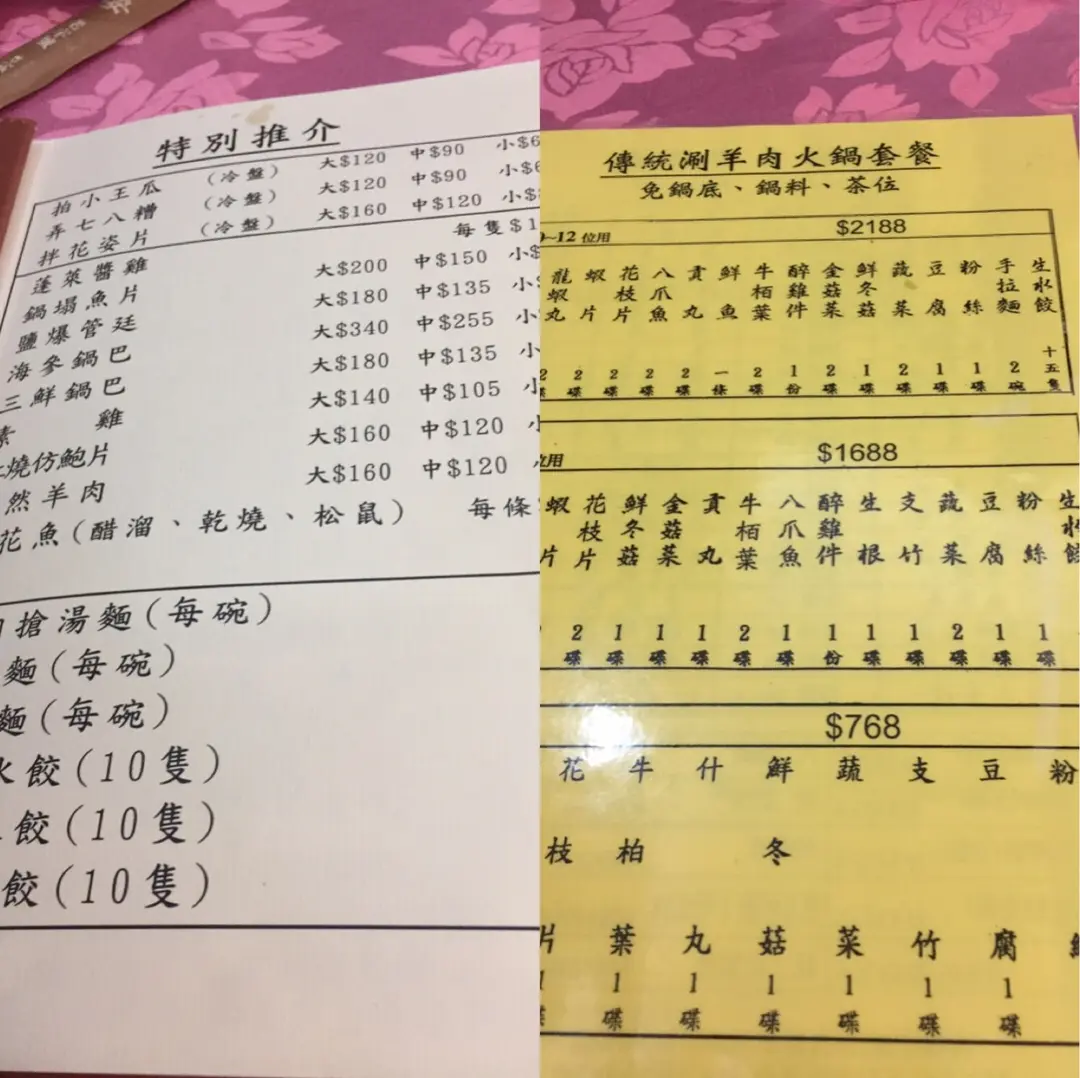 特別推介
拍小王瓜 (冷盤) 大$120 中$90 小$6
弄七八糟 (冷盤) 大$120 中$90 小$6
拌花姿片 (冷盤) 大$160 中$120 小$
蓬萊醬雞 每隻$1
鍋塌魚片 大$200 中$150 小$
鹽爆管廷 大$180 中$135 小
海參鍋巴 大$340 中$255 小
三鮮鍋巴 大$180 中$135 小
素雞 大$140 中$105
燒仿鮑片 大$160 中$120
然羊肉 大$160 中$120
花魚(醋溜、乾燒、松鼠) 每條
搶湯麵(每碗)
麵(每碗)
麵(每碗)
水餃(10隻)
餃(10隻)
餃(10隻)
傳統涮羊肉火鍋套餐
免鍋底、鍋料、茶位
~12 位用 $2188
龍蝦丸 蝦片 花枝片 八爪魚 貢丸 鮮魚 牛栢葉 醉雞件 金菇菜 鮮冬菇 蔬菜 豆腐 粉絲 手拉麵 生水餃
2碟 2碟 2碟 2碟 2碟 一條 2碟 1份 2碟 1碟 2碟 1碟 1碟 2碗 十五隻
位用 $1688
蝦片 花枝片 鮮冬菇 金菇菜 貢丸 牛栢葉 八爪魚 醉雞件 生根 支竹 蔬菜 豆腐 粉絲 生水餃
2碟 1碟 1碟 1碟 2碟 1碟 1份 1碟 1碟 2碟 1碟 1碟
$768
花枝片 牛柏葉 什丸 鮮冬菇 蔬菜 支竹 豆腐 粉
1碟 1碟 1碟 1碟 1碟 1碟 1碟